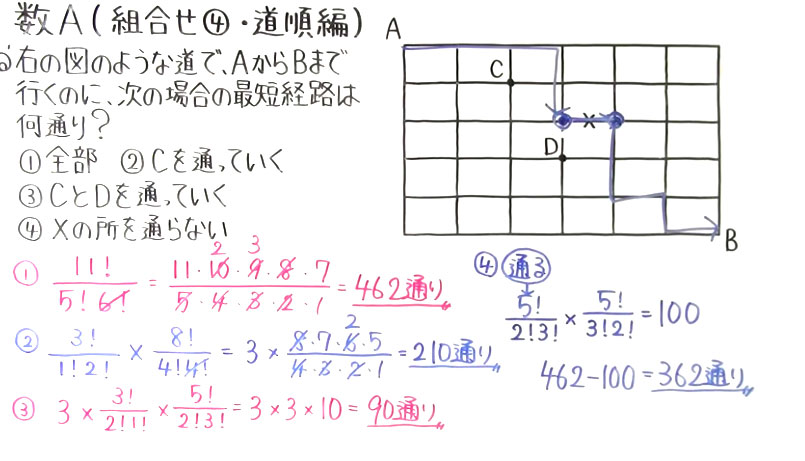 数A(組合せ④・道順編)
右の図のような道で、AからBまで
行くのに、次の場合の最短経路は
何通り?
①全部 ②Cを通っていく
③CとDを通っていく
④Xの所を通らない
A
C
X
D
B
① 11!/5!6! = 11・10・9・8・7/5・4・3・2・1 = 462通り
2 3
② 3!/1!2! × 8!/4!4! = 3 × 8・7・6・5/4・3・2・1 = 210通り
2
③ 3 × 3!/2!1! × 5!/2!3! = 3 × 3 × 10 = 90通り
④ 通る
5!/2!3! × 5!/3!2! = 100
462-100 = 362通り